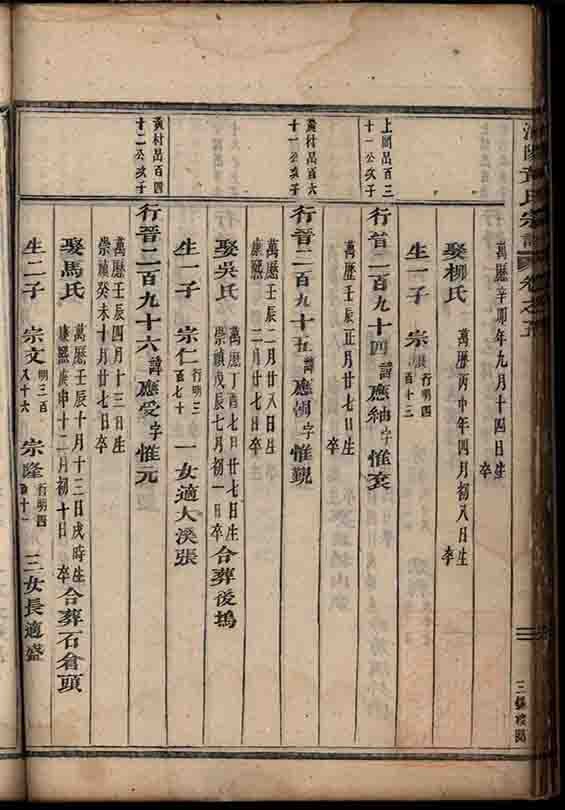 氏宗譜 卷之
三
萬曆辛卯年九月十四日生
卒
娶柳氏 萬曆丙申年四月初八日生
卒
生一子 宗 行明四
百十三
上閣呂百三
十一公次子
行晉二百九十四 諱應紬字惟袞
萬曆壬辰正月廿七日生
卒
黃村呂百六
十一公次子
行晉二百九十五 諱應 字惟覲
萬曆壬辰二月廿八日生
康熙 二月廿七日卒
娶吳氏 萬曆丁酉七月廿七日生
崇禎戊辰七月初一日卒 合葬後塢
生一子 宗仁 行明三
百七十 一女適大溪張
黃村呂百四
十二公次子
行晉二百九十六 諱應受字惟元
萬曆壬辰四月十三日生
崇禎癸未十月廿七日卒
娶馬氏 萬曆壬辰十月十三日戌時生
康熙庚申十二月初十日卒 合葬石倉頭
生二子 宗文 明三百
八十六 宗隆 行明四
十一 三女長適盛